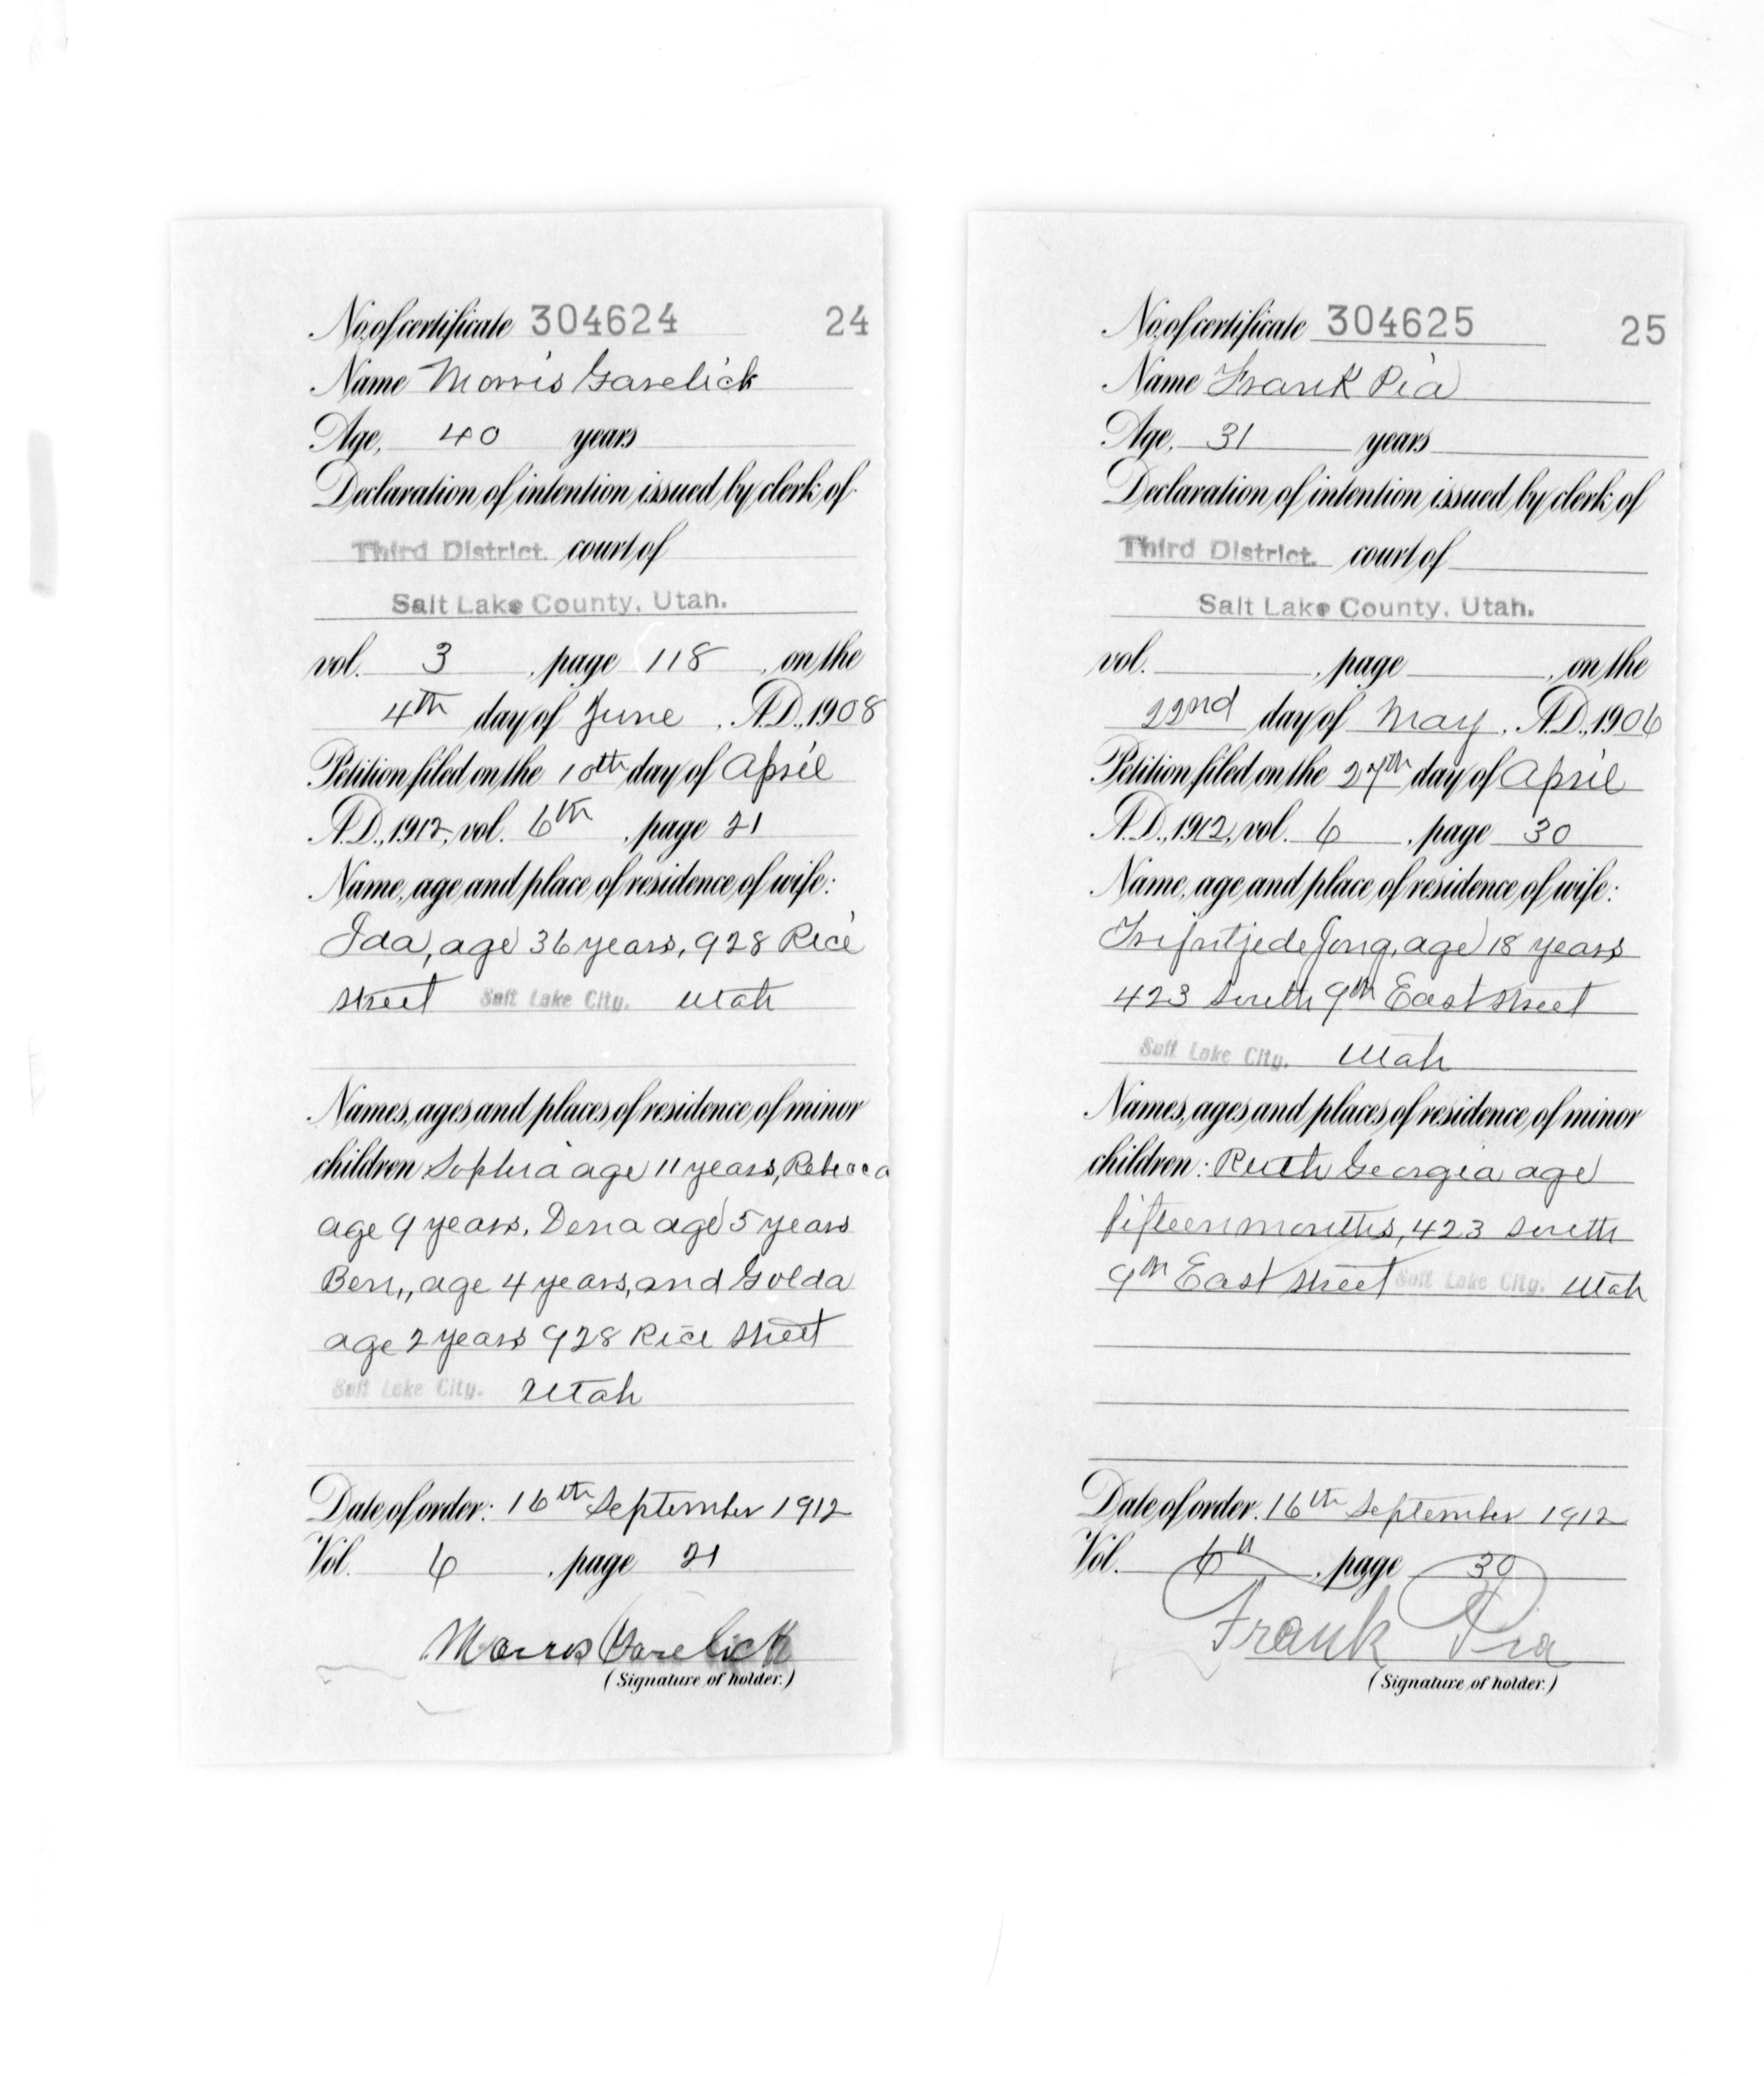 No. of certificate 304624 24
Name Morris Garelick
Age, 40 years
Declaration of intention issued by clerk of
Third District. court of
Salt Lake County, Utah.
vol. 3, page 118, on the
4th day of June, A.D., 1908
Petition filed on the 10th day of April
A.D., 1912, vol. 6th, page 21
Name, age and place of residence of wife:
Ida, age 36 years, 928 Rice
street Salt Lake City. Utah
Names, ages and places of residence of minor
children Sophia age 11 years, Rebecca
age 9 years, Dena age 5 years
Ben,, age 4 years, and Golda
age 2 years 928 Rice street
Salt Lake City. Utah
Date of order: 16th September 1912
Vol. 6, page 21
Morris Garelick
(Signature of holder.)
No. of certificate 304625 25
Name Frank Pia
Age, 31 years
Declaration of intention issued by clerk of
Third District. court of
Salt Lake County, Utah.
vol. , page , on the
22nd day of May, A.D., 1906
Petition filed on the 27th day of April
A.D., 1912, vol. 6, page 30
Name, age and place of residence of wife:
de Jong, age 18 years
423 South 9th East street
Salt Lake City. Utah
Names, ages and places of residence of minor
children: Ruth Georgia age
fifteen months, 423 South
9th East street Salt Lake City. Utah
Date of order. 16th September 1912
Vol. 6th, page 30
Frank Pia
(Signature of holder.)